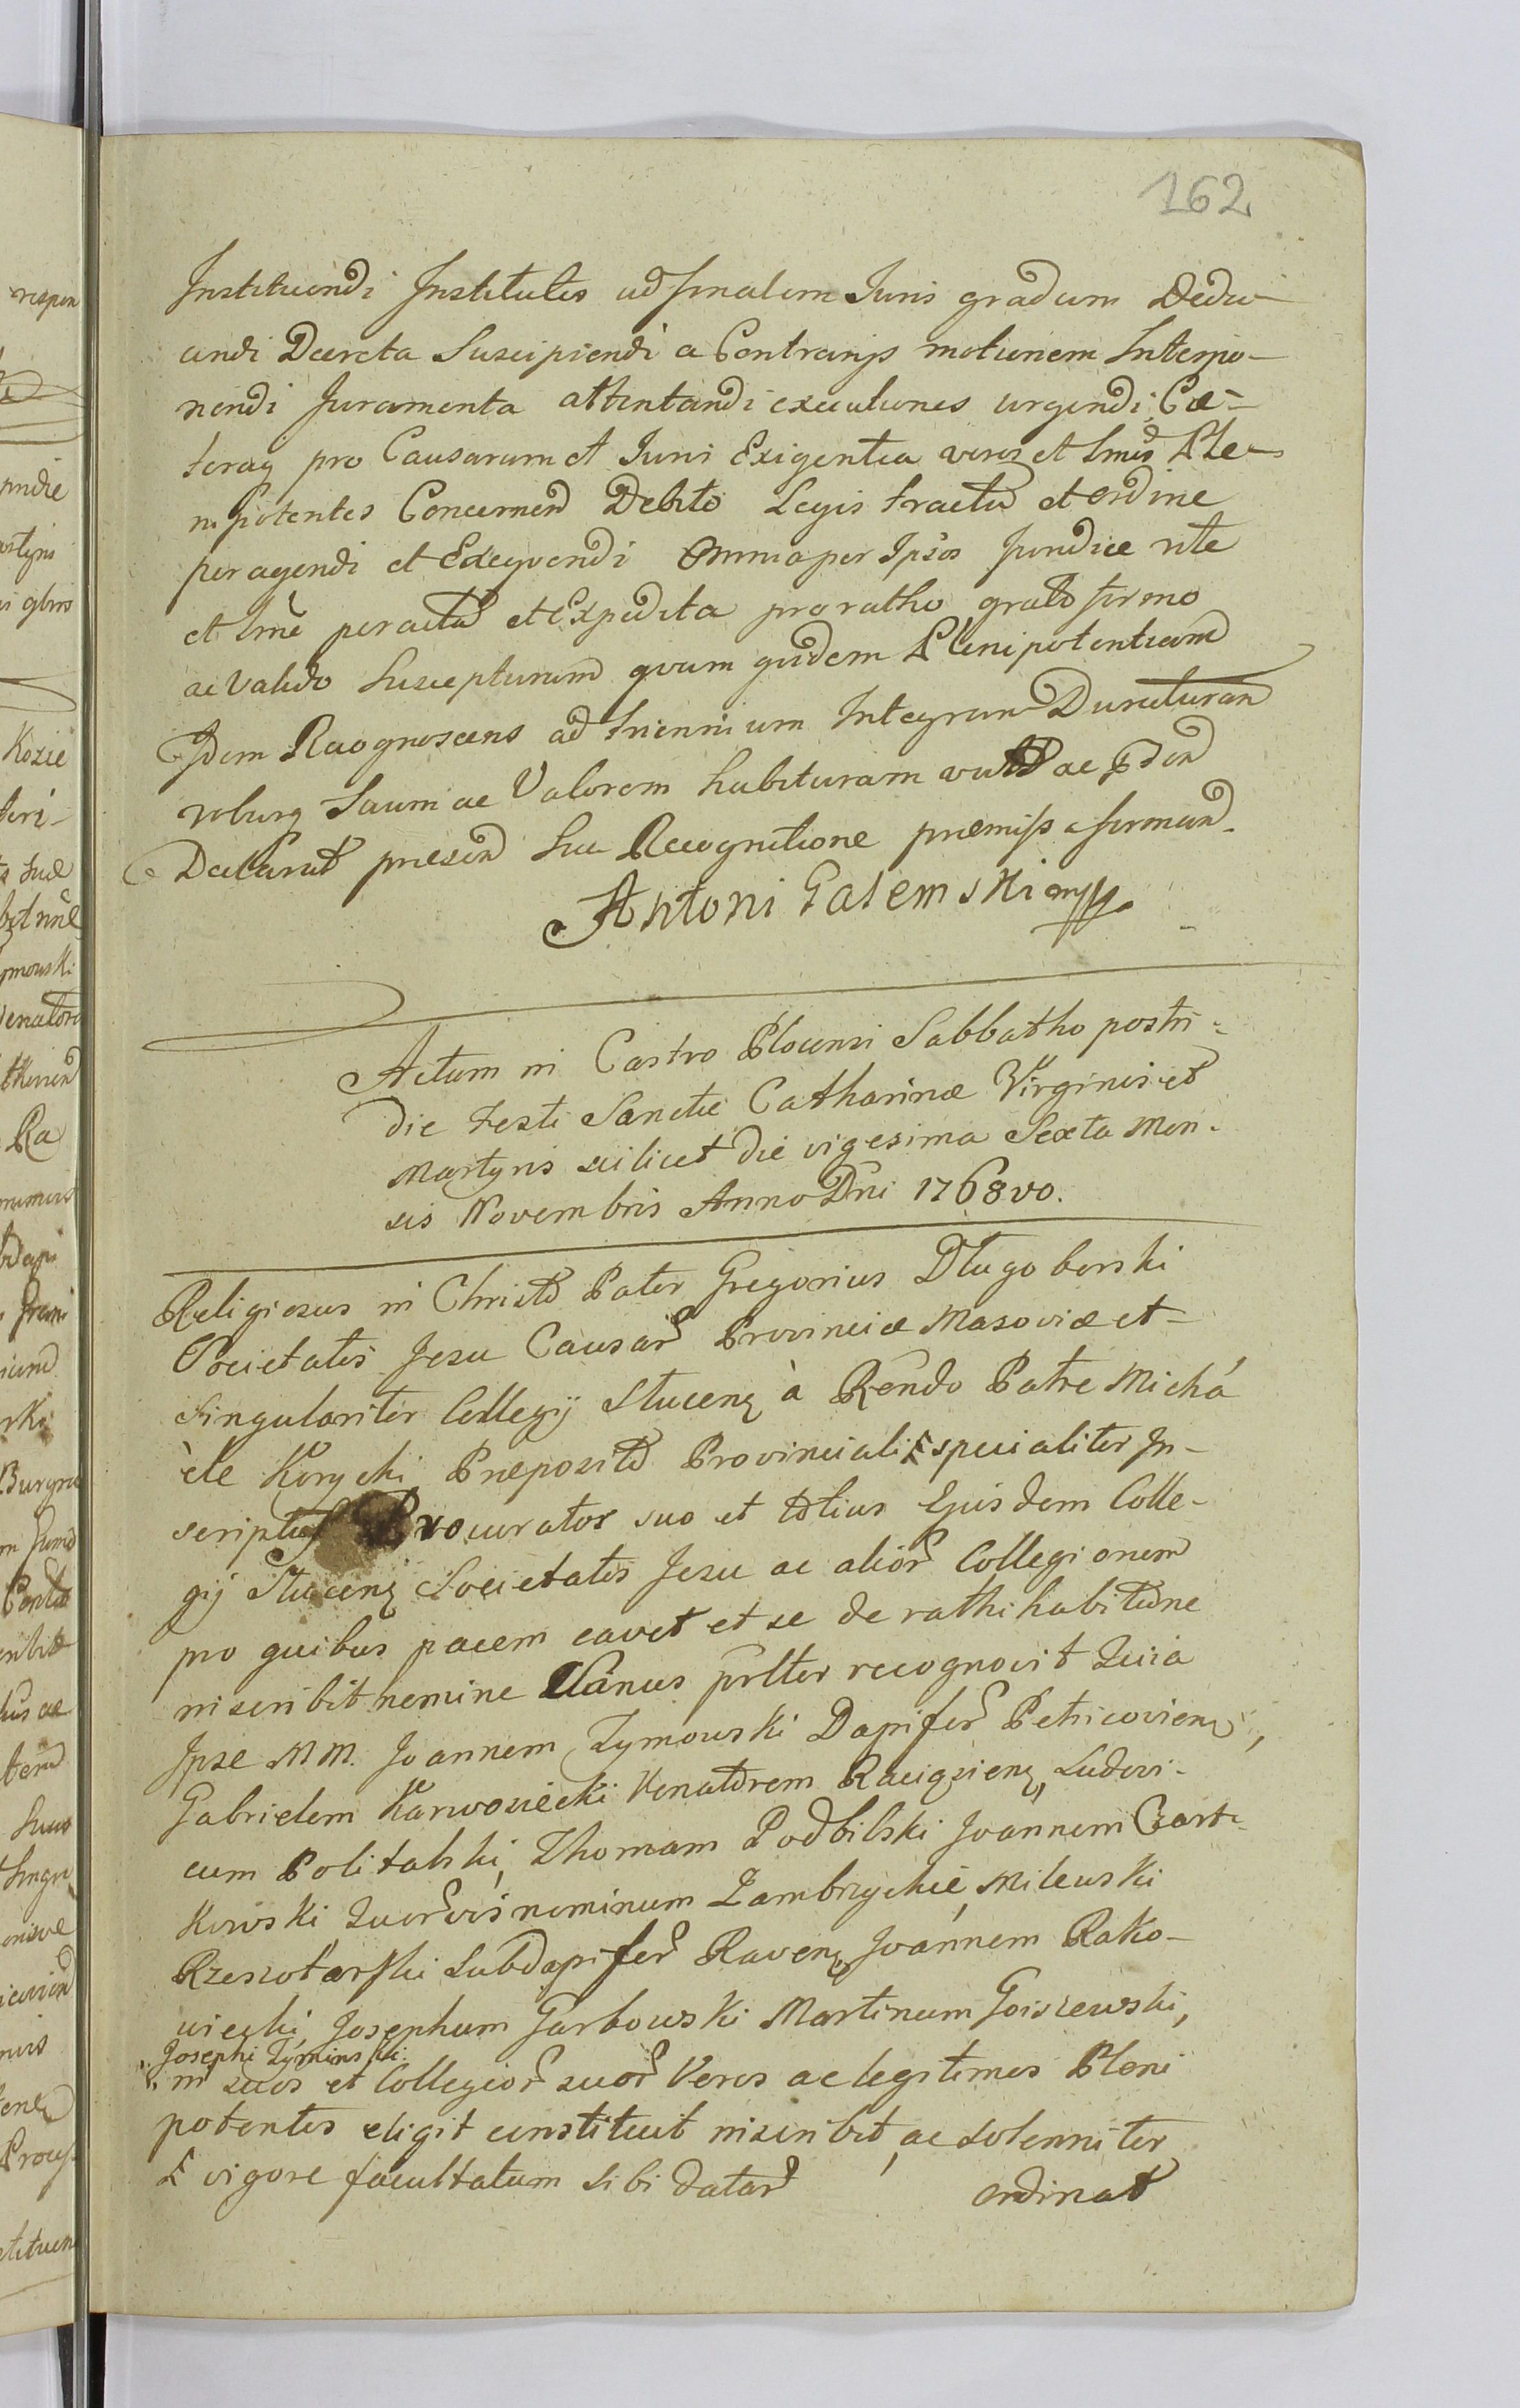 162
Instituendi Institutis ad finalem Iuris gradum Dedu-
cendi Decreta Suscipiendi a Contrarijs motionem Interpo-
nendi Juramenta attentandi executiones urgendi, Cæ-
teraq pro Causarum et Iuris Exigentia veros et Lmõs Ple-
nipotentes Concernen Debito Legis tractu et ordine
peragendi et Exeqvendi Omnia per Ipsos Juridice rite
et Lmẽ peracta et Expedita pro ratho grato firmo
ac Valido Suscepturum qvam quidem Plenipotentiam
Idem Recognoscens ad triennium Integrum Duraturam
roburq Suum ac Valorem habituram vult ac
Declarat præsen Sua Recognitione præmissa firman.
Antoni Galemski mpp.
Actum in Castro Plocensi Sabbatho postri-
die Festi Sanctæ Catharinæ Virginis et
Martyris scilicet die vigesima Sexta Men-
sis Novembris Anno Dni 1768vo.
Religiosus in Christo Pater Gregorius Dlugoborski
Societatis Jesu Causar Provinciæ Masoviæ et
Singulariter Collegij Plucen à Rendo Patre Micha
ële Korycki Præposito Provinciali specialiter In-
scriptus Procurator suo et totius Ejusdem Colle-
gij Societatis Jesu ac alior Collegiorum
pro quibus pacem cavet et se de rathihabitione
inscribit nomine Sanus prltter recognovit Quia
Ipse M M. Joannem Zymowski Dapifer Petricovien,
Gabrielem Karwosiecki Venatorem Raciązien, Ludovi-
cum Politalski, Thomam Podbilski Joannem Czart-
kowski Quorvis nominum Zambrzyckie, Milewski
Rzeszotarski Subdapifer Raven, Joannem Rako-
wiecki, Josephum Garbowski Martinum Goiszewski,
Josephi Zyminski
in suos et Collegior suor Veros ac legitimos Pleni
potentes eligit constituit inscribit, ac solenniter
vigore facultatum sibi datar ordinat